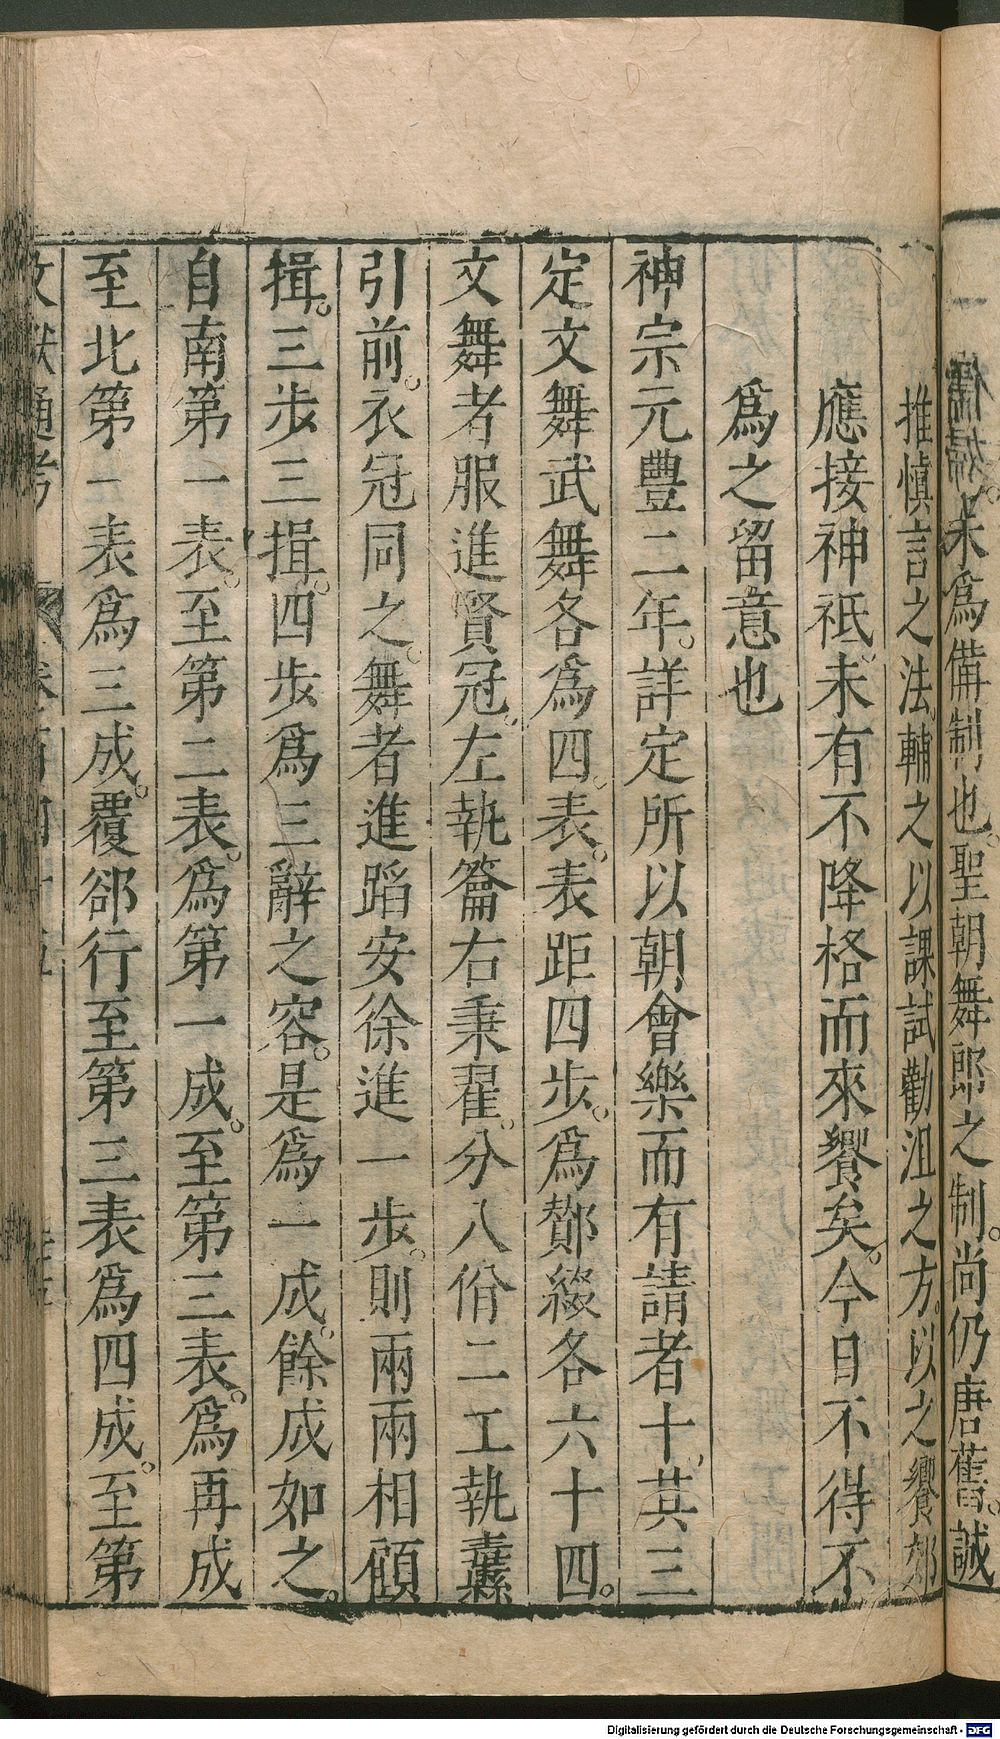 備制也。聖朝舞郎之制。尚仍唐舊。誠
推慎言之法。輔之以課試勸沮之方。以之饗郊
應接神祇。未有不降格而來饗矣。今日不得不
爲之留意也
神宗元豐二年。詳定所以朝會樂而有請者十。其三
定文舞武舞各爲四表。表距四步。爲酇綴各六十四。
文舞者服進賢冠。左執籥右秉翟。分八佾二工執纛
引前。衣冠同之。舞者進蹈安徐進一步。則兩兩相顧
揖。三步三揖。四步爲三辭之容。是爲一成。餘成如之。
自南第一表。至第二表。爲第一成。至第三表。爲再成
至北第一表爲三成。覆郤行至第三表爲四成。至第
Digitalisierung gefördert durch die Deutsche Forschungsgemeinschaft - DFG